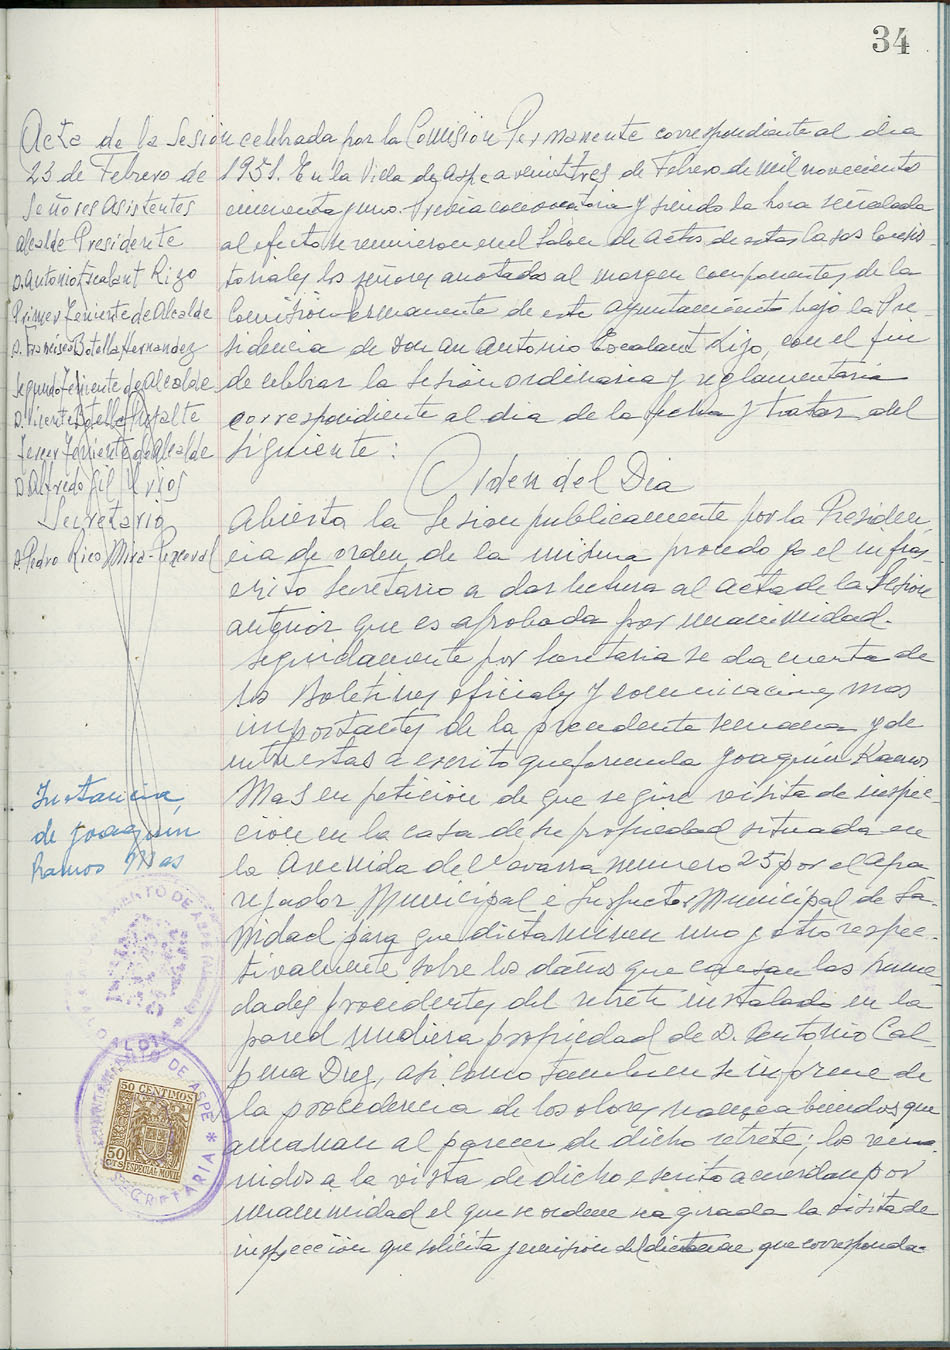 34
Acta de la Sesión celebrada por la Comisión Permanente correspondiente al dia
23 de Febrero de 1951. En la Villa de Aspe a veintitres de Febrero de mil novecientos
Señores Asistentes
Alcalde Presidente
D. Antonio Escalant Rizo
Primer Teniente de Alcalde
D. Francisco Botella Hernandez
Segundo Teniente de Alcalde
D. Vicente Botella
Tercer Teniente de Alcalde
D. Alfredo Gil Urios
Secretario
D. Pedro Rico Mira-Perceval
cincuenta y uno. Previa convocatoria y siendo la hora señalada
al efecto se reunieron en el Salon de Actos de estas Casas Consis-
toriales los señores anotados al margen componentes de la
Comisión Permanente de este Ayuntamiento bajo la Pre-
sidencia de Don Antonio Escalant Rizo, con el fin
de celebrar la Sesión ordinaria y reglamentaria
correspondiente al dia de la fecha y tratar del
siguiente:
Orden del Dia
Abierta la Sesion publicamente por la Presiden-
cia de orden de la misma procedo yo el infras-
crito Secretario a dar lectura al acta de la Sesion
anterior que es aprobada por unanimidad.
Seguidamente por Secretaria se da cuenta de
los Boletines oficiales y comunicaciones mas
importantes de la precedente semana y de
entre estas a escrito que formula Joaquín Ramos
Mas en peticion de que se gire visita de inspec-
cion en la casa de su propiedad situada en
la Avenida de Navarra numero 25 por el Apa-
rejador Municipal e Inspector Municipal de Sa-
nidad para que dictaminen uno y otro respec-
tivamente sobre los daños que causan las hume-
dades procedentes del retrete instalado en la
pared medianera propiedad de D. Antonio Cal-
pena Diez, asi como tambien se informe de
la procedencia de los olores nauseabundos que
emanan al parecer de dicho retrete; los reu-
nidos a la vista de dicho escrito acuerdan por
unanimidad el que se ordene sea girada la visita de
inspección que solicita y emision del dictamen que corresponda.
Instancia
de Joaquín
Ramos Mas
AYUNTAMIENTO DE ASPE
ALCALDIA
AYUNTAMIENTO DE ASPE
SECRETARIA
50 CENTIMOS
50
CTS
ESPECIAL MOVIL